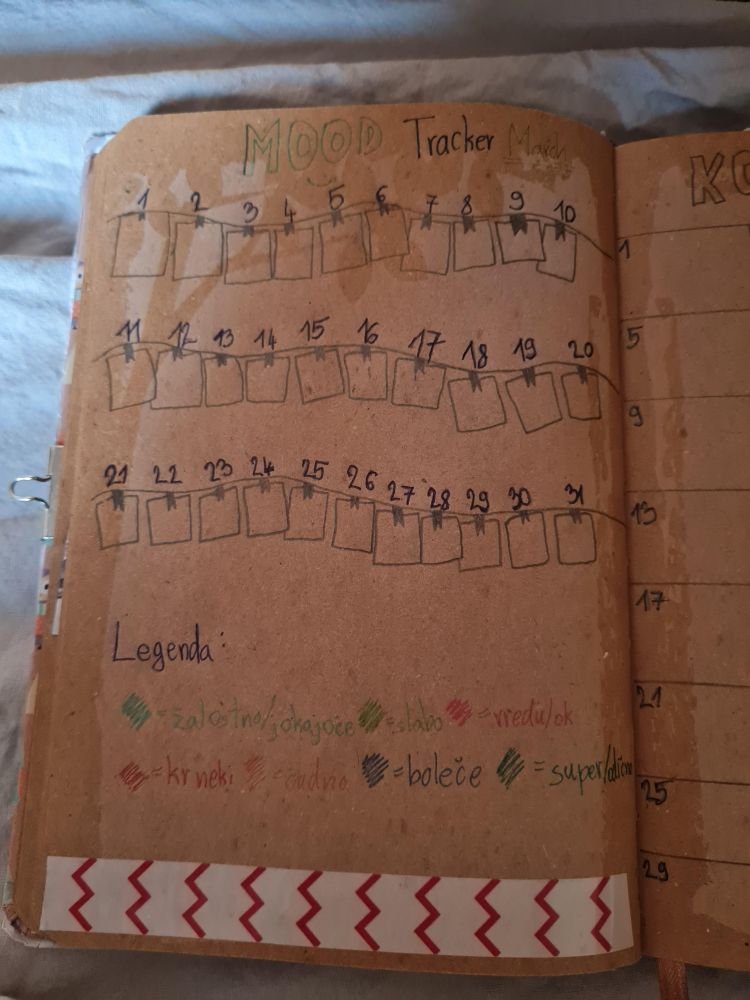 MOOD Tracker March
1 2 3 4 5 6 7 8 9 10
11 12 13 14 15 16 17 18 19 20
21 22 23 24 25 26 27 28 29 30 31
Legenda:
= žalostno/jokajoče = slabo = vredu/ok
= kr neki = čudno = boleče = super/odlično
KO
1
5
9
13
17
21
25
29